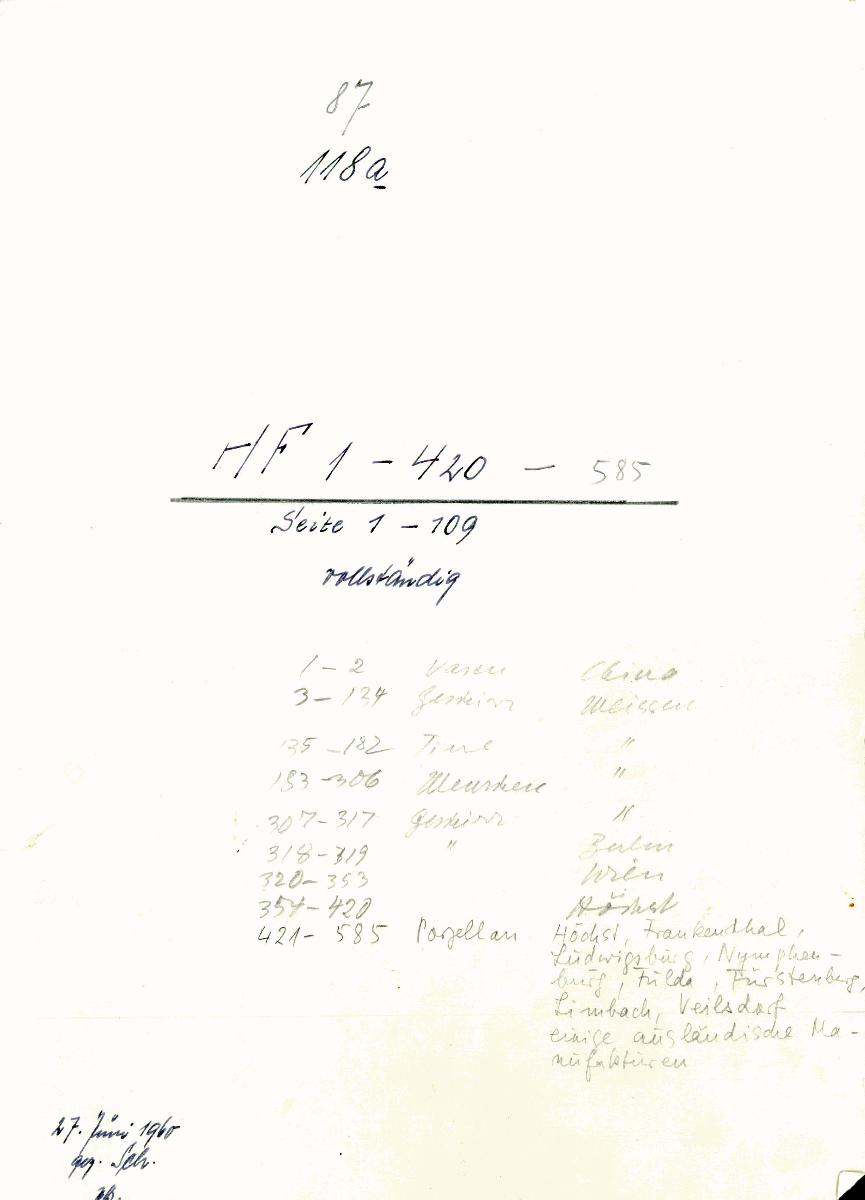 87
118a
HF 1 – 420 – 585
Seite 1 – 109
vollständig
1 – 2 Vasen China
3 – 134 Geschirr Meissen
135 – 182 Tiere "
183 – 306 Menschen "
307 – 317 Geschirr "
318 – 319 " Berlin
320 – 353 Wien
354 – 420 Höchst
421 – 585 Porzellan Höchst, Frankenthal,
Ludwigsburg, Nymphen-
burg, Fulda, Fürstenberg,
Limbach, Veilsdorf
einige ausländische Ma-
nufakturen
27. Juni 1960
gez. Sch.